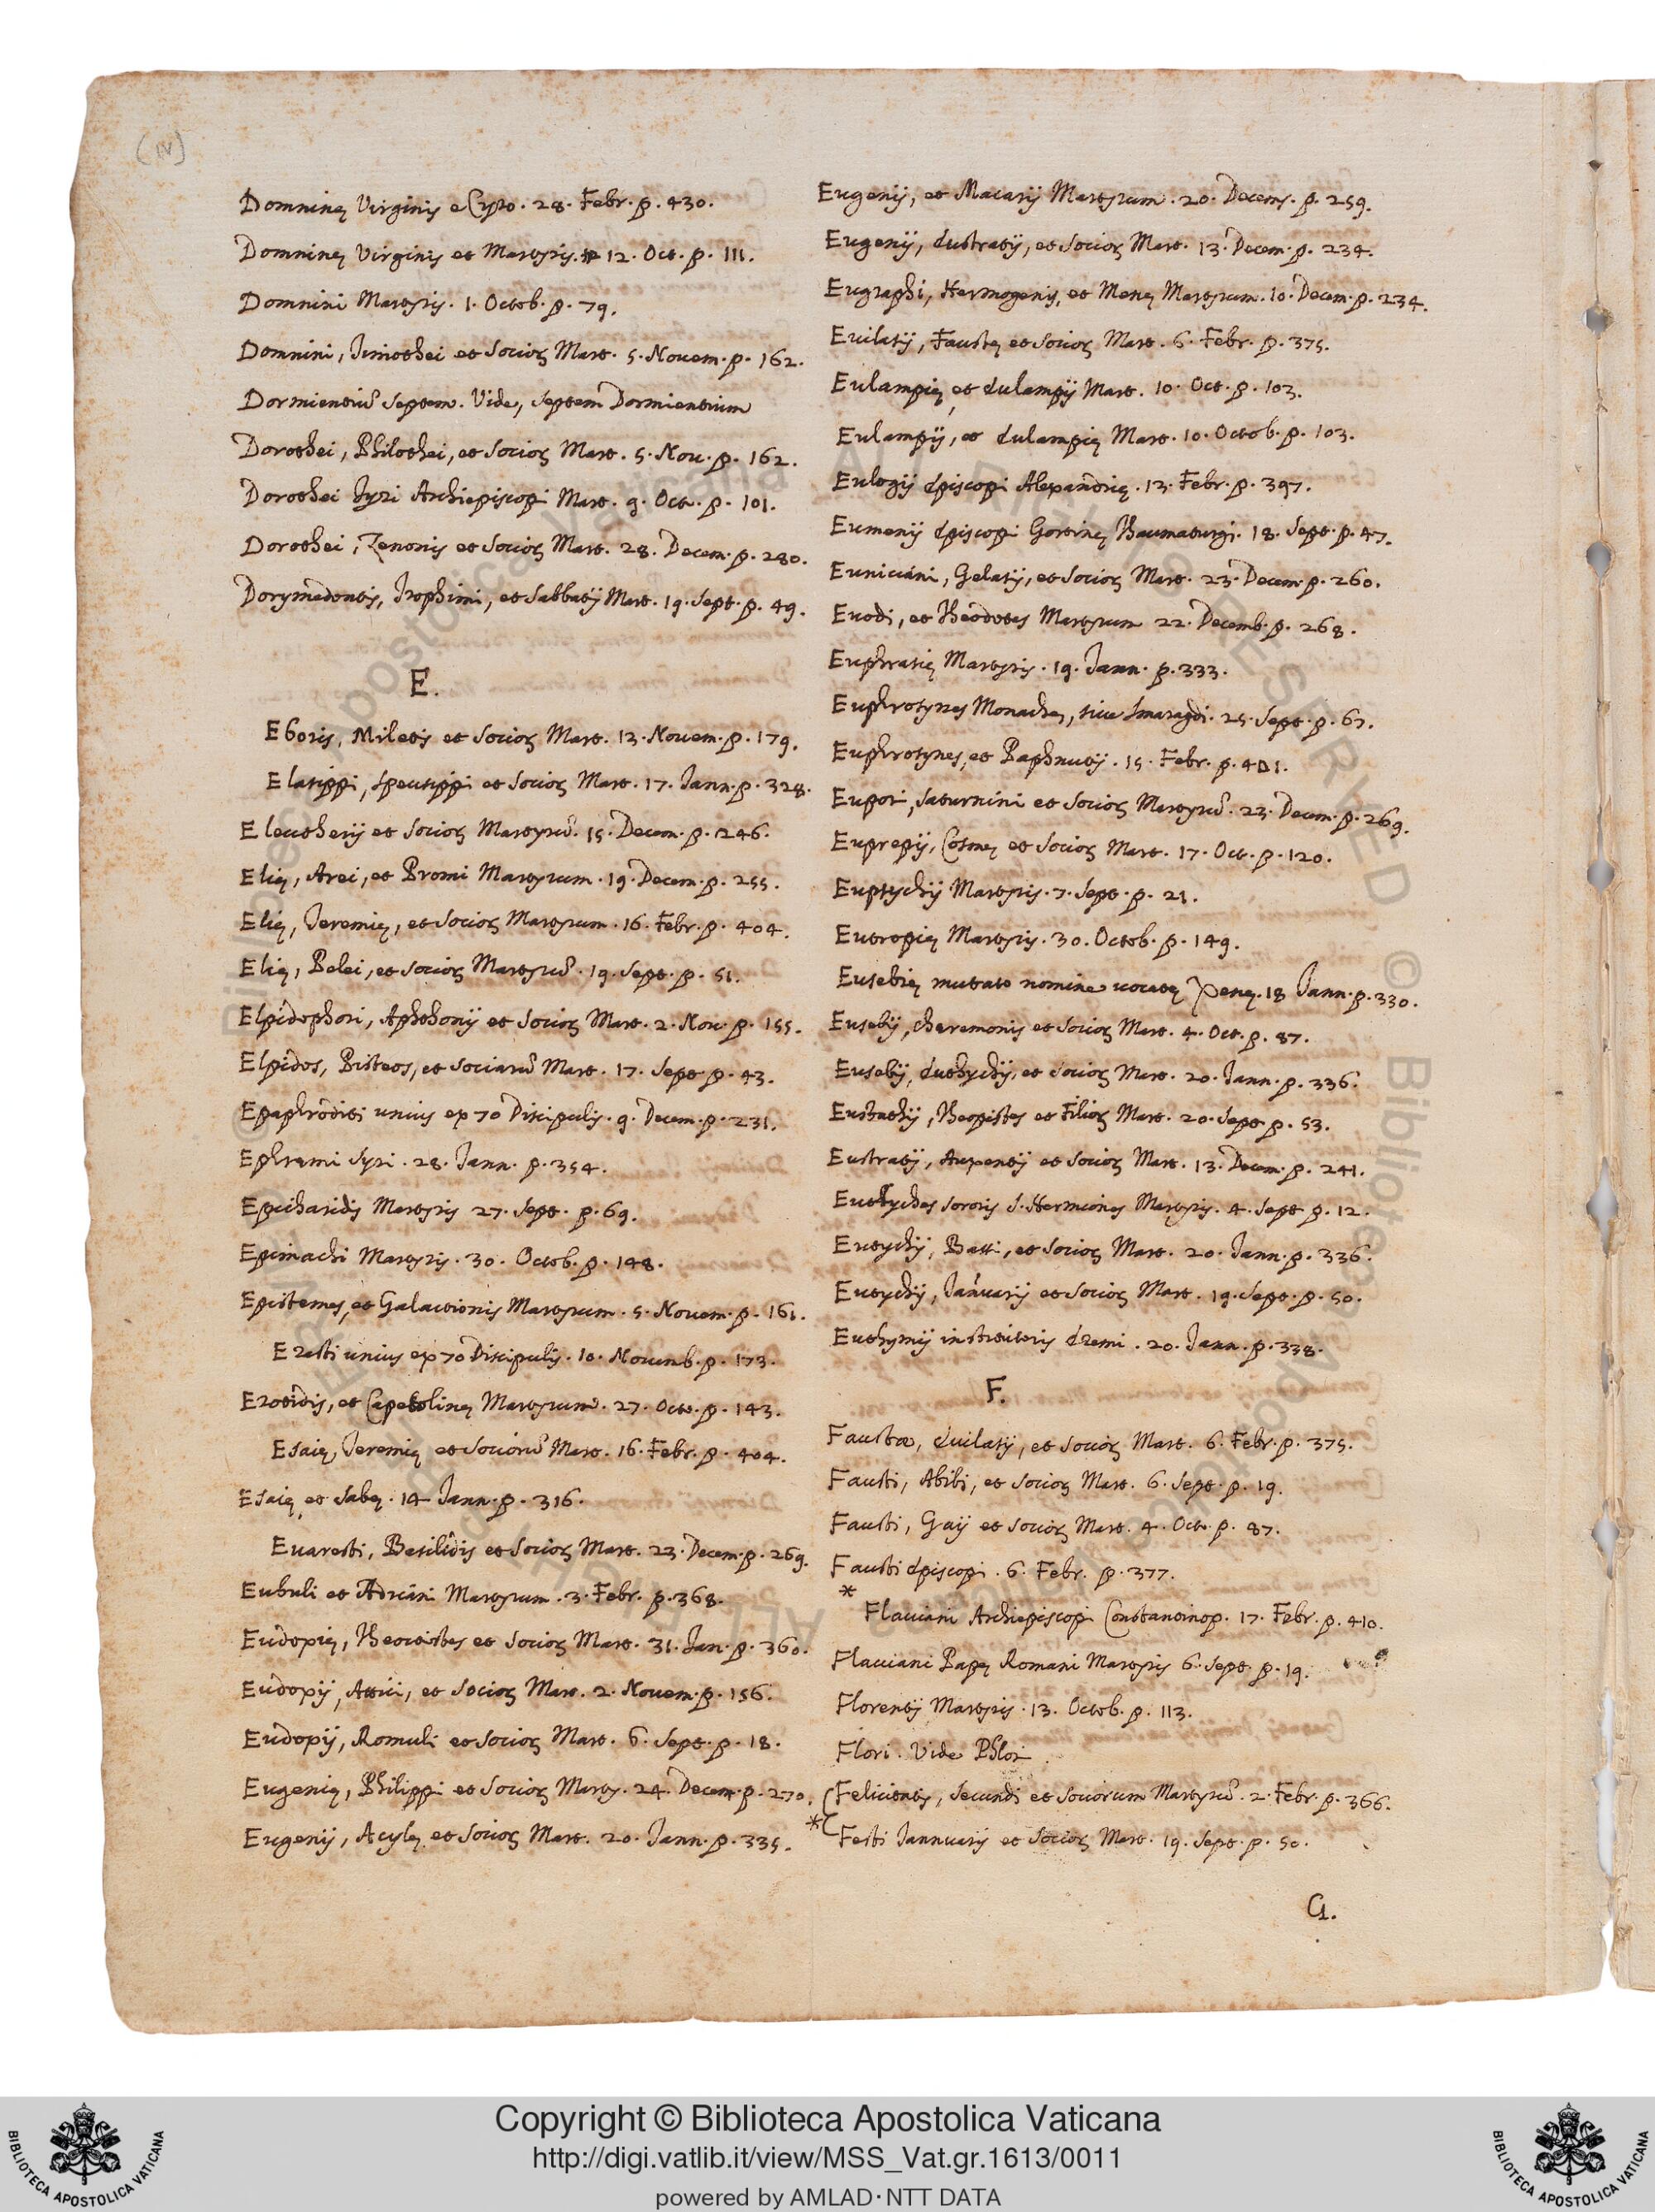 (IV)
Domninę Virginis e Cyro. 28. Febr. p. 430.
Domninę Virginis et Martyris. 12. Oct. p. 111.
Domnini Martyris. 1. Octob. p. 79.
Domnini, Timothei et Socior. Mart. 5. Novem. p. 162.
Dormientiũ Septem. Vide, Septem Dormientium
Dorothei, Philothei, et Socior. Mart. 5. Nov. p. 162.
Dorothei Tyri Archiepiscopi Mart. 9. Oct. p. 101.
Dorothei, Zenonis et Socior. Mart. 28. Decem. p. 280.
Dorymedontis, Trophimi, et Sabbatij Mart. 19. Sept. p. 49.
E.
Eboris, Miletis et Socior. Mart. 13. Novem. p. 179.
Elasippi, Speusippi et Socior. Mart. 17. Jann. p. 328.
Eleutherij et Socior. Martyrũ. 15. Decem. p. 246.
Elię, Arei, et Promi Martyrum. 19. Decem. p. 255.
Elię, Jeremię, et Socior. Martyrum. 16. Febr. p. 404.
Elię, Pelei, et Socior. Martyrũ. 19. Sept. p. 51.
Elpidophori, Aphthonij et Socior. Mart. 2. Nov. p. 155.
Elpidos, Pisteos, et Sociarũ Mart. 17. Sept. p. 43.
Epaphroditi unius ex 70 Discipulis. 9. Decem. p. 231.
Ephremi Syri. 28. Jann. p. 354.
Epicharidis Martyris 27. Sept. p. 69.
Epimachi Martyris. 30. Octob. p. 148.
Epistemes, et Galactionis Martyrum. 5. Novem. p. 161.
Erasti unius ex 70 Discipulis. 10. Novemb. p. 173.
Erotidis, et Capetolinę Martyrum. 27. Octo. p. 143.
Esaię, Jeremię et Sociorũ Mart. 16. Febr. p. 404.
Esaię et Sabę. 14 Jann. p. 316.
Evaresti, Basilidis et Socior. Mart. 23. Decem. p. 269.
Eubuli et Adriani Martyrum. 3. Febr. p. 368.
Eudoxię, Theoctistes et Socior. Mart. 31. Jan. p. 360.
Eudoxij, Attici, et Socior. Mart. 2. Novem. p. 156.
Eudoxij, Romuli et Socior. Mart. 6. Sept. p. 18.
Eugenię, Philippi et Socior. Marty. 24. Decem. p. 270.
Eugenij, Acylę et Socior. Mart. 20. Jann. p. 335.
Eugenij, et Macarij Martyrum. 20. Decem. p. 259.
Eugenij, Eustratij, et Socior. Mart. 13. Decem. p. 234.
Eugraphi, Hermogenis, et Menę Martyrum. 10. Decem. p. 234.
Evilasij, Faustę et Socior. Mart. 6. Febr. p. 375.
Eulampię et Eulampij Mart. 10. Oct. p. 103.
Eulampij, et Eulampię Mart. 10. Octob. p. 103.
Eulogij Episcopi Alexandrię. 13. Febr. p. 397.
Eumenij Episcopi Gortinę Thaumaturgi. 18. Sept. p. 47.
Euniciani, Gelasij, et Socior. Mart. 23. Decem. p. 260.
Evodi, et Theodotes Martyrum 22. Decemb. p. 268.
Euphrasię Martyris. 19. Jann. p. 333.
Euphrosynes Monachę, sive Smaragdi. 25. Sept. p. 67.
Euphrosynes, et Paphnutij. 15. Febr. p. 401.
Eupori, Saturnini et Socior. Martyrũ. 23. Decem. p. 269.
Euprepij, Cosmę et Socior. Mart. 17. Oct. p. 120.
Eupsychij Martyris. 7. Sept. p. 21.
Eutropię Martyris. 30. Octob. p. 149.
Eusebię mutato nomine vocatę Xenę. 18 Jann. p. 330.
Eusebij, Cheremonis et Socior. Mart. 4. Oct. p. 87.
Eusebij, Eutychij, et Socior. Mart. 20. Jann. p. 336.
Eustathij, Theopistes et Filior. Mart. 20. Sept. p. 53.
Eustratij, Auxentij et Socior. Mart. 13. Decem. p. 241.
Eutyches sororis S. Hermiones Martyris. 4. Sept p. 12.
Eutychij, Bassi, et Socior. Mart. 20. Jann. p. 336.
Eutychij, Januarij et Socior. Mart. 19. Sept. p. 50.
Euthymij institutoris Eremi. 20. Jann. p. 338.
F.
Faustæ, Evilasij, et Socior. Mart. 6. Febr. p. 375.
Fausti, Abibi, et Socior. Mart. 6. Sept. p. 19.
Fausti, Gaij et Socior. Mart. 4. Oct. p. 87.
Fausti Episcopi. 6. Febr. p. 377.
* Flaviani Archiepiscopi Constantinop. 17. Febr. p. 410.
Flaviani Papę Romani Martyris 6. Sept. p. 19.
Florentij Martyris. 13. Octob. p. 113.
Flori. Vide Phlori
Felicitatis, Secundi et Sociorum Martyrũ. 2. Febr. p. 366.
* Festi Jannuarij et Socior. Mart. 19. Sept. p. 50.
G.
Copyright © Biblioteca Apostolica Vaticana
http://digi.vatlib.it/view/MSS_Vat.gr.1613/0011
powered by AMLAD·NTT DATA
BIBLIOTECA APOSTOLICA VATICANA
BIBLIOTECA APOSTOLICA VATICANA